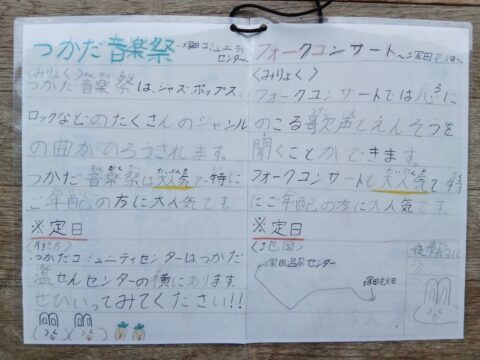 つかだ音楽祭 〜塚田コミュニティセンター〜
〈みりょく〉
つかだ音楽祭は、ジャズ・ポップス、
ロックなどのたくさんのジャンル
の曲がひろうされます。
つかだ音楽祭は大人気で特に
ご年配の方に大人気です。
※定日
〈行き方〉
つかだコミュニティセンターはつかだ
センターの横にあります。
ぜひいってみてください!!
フォークコンサート
〈みりょく〉
フォークコンサートでは心に
のこる歌声とえんそうを
聞くことができます。
フォークコンサートも大人気で特
にご年配の方に大人気です。
※定日
〈地図〉
センター